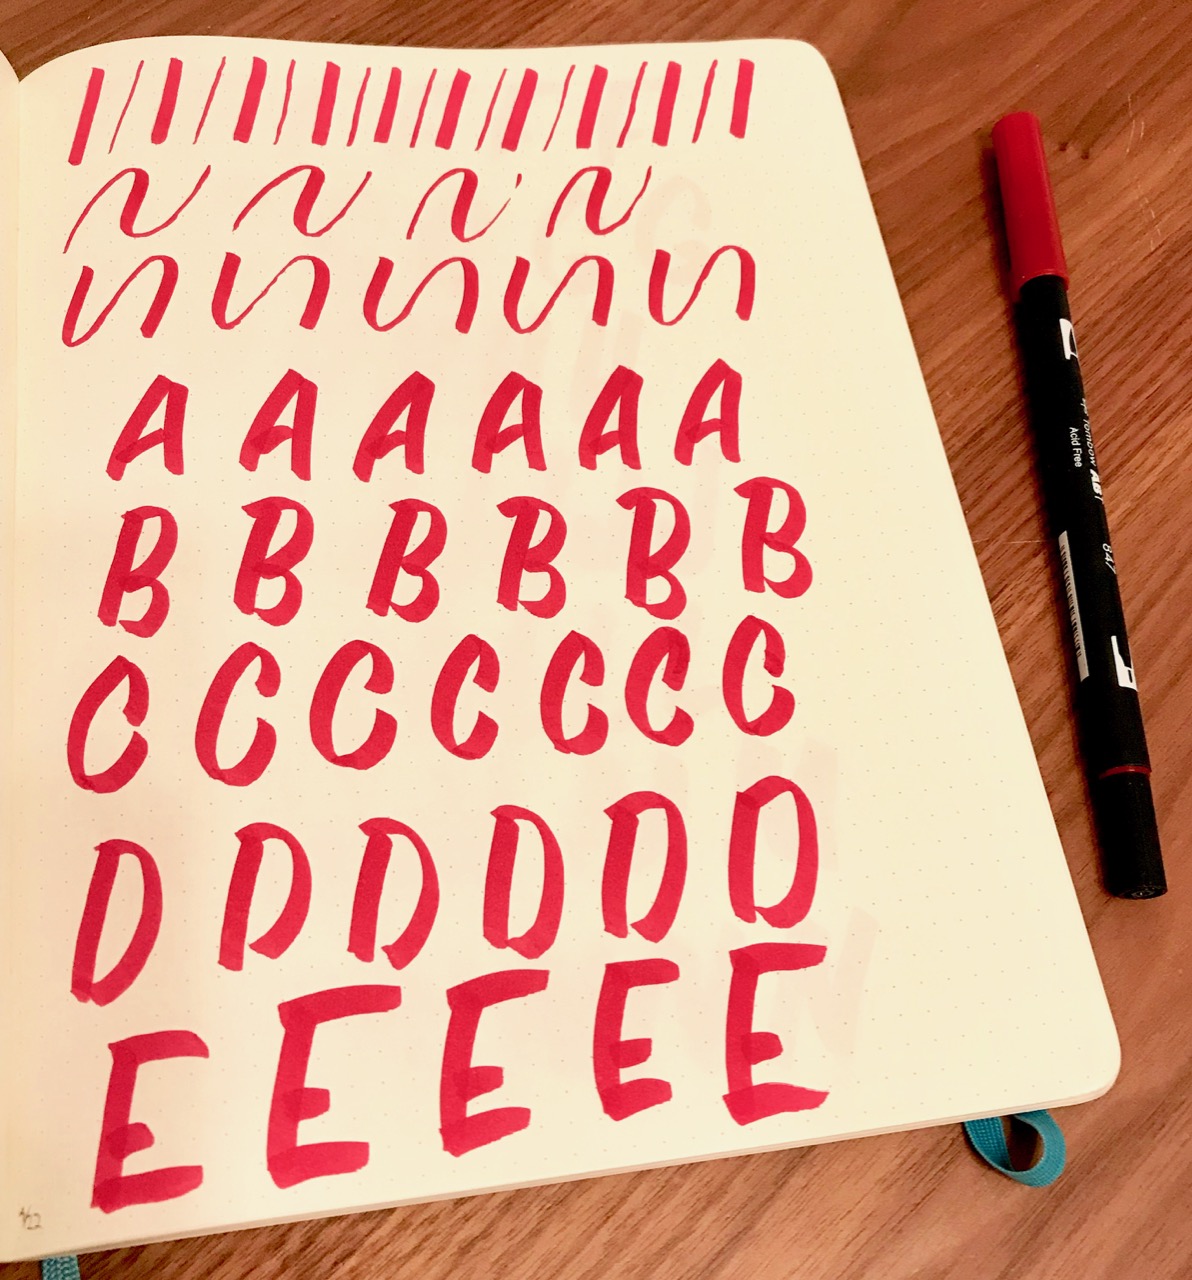 A A A A A A
B B B B B B
C C C C C C C
D D D D D D
E E E E E
4/22
Tombow ABT
Acid Free
847